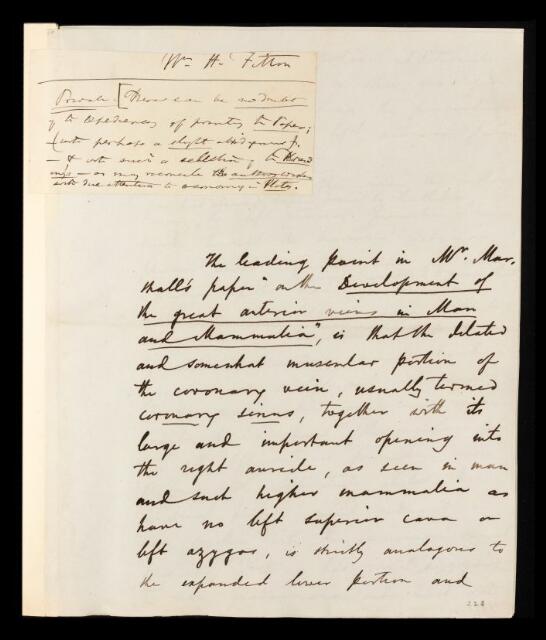 Wm H. Fitton
Private. [There can be no doubt
of the expediency of printing the Paper;
(with perhaps a slight abridgement).
– & with such a selection of the Draw
ings – as may reconcile the authors wishes
with due attention to economy in Plates.
The leading point in Mr. Mar.
shall's paper "on the Development of
the great anterior veins in Man
and Mammalia", is that the dilated
and somewhat muscular portion of
the coronary vein, usually termed
coronary sinus, together with its
large and important opening into
the right auricle, as seen in man
and such higher mammalia as
have no left superior cava or
left azygos, is strictly analogous to
the expanded lower portion and
228